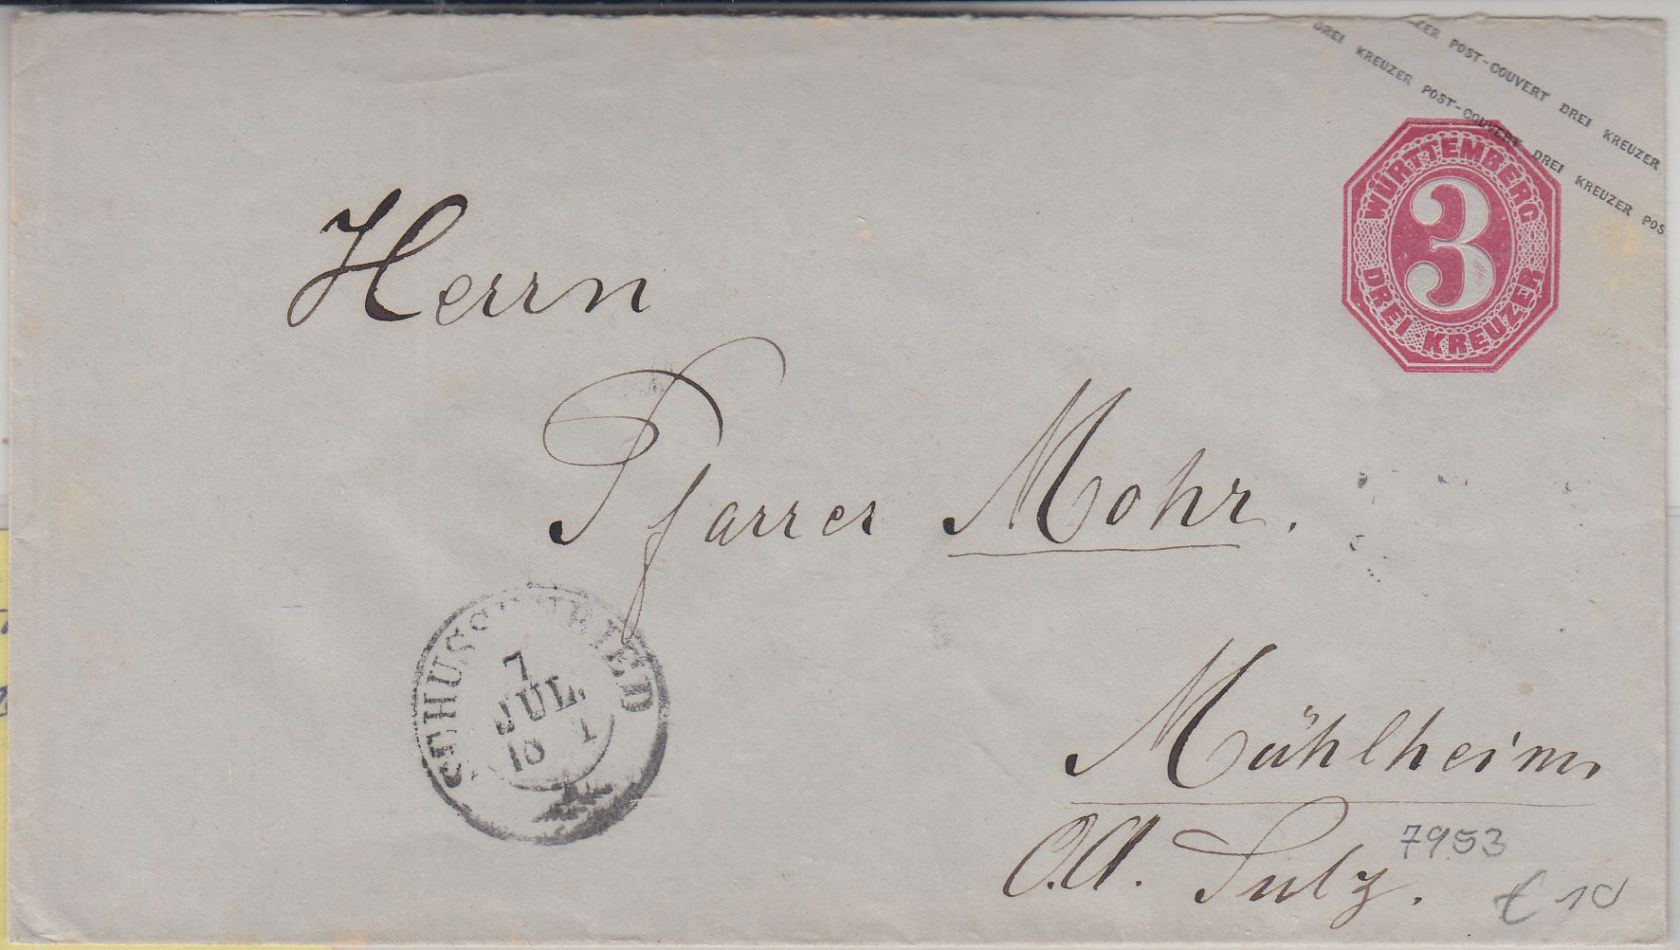 ZER POST-COUVERT DREI KREUZER
DREI KREUZER POST-COUVERT DREI KREUZER POS
WÜRTTEMBERG
3
DREI KREUZER
Herrn
Pfarrer Mohr.
SCHUSSENRIED
7
JUL.
18 1
Mühlheim,
O.A. Sulz.
7953
€ 10